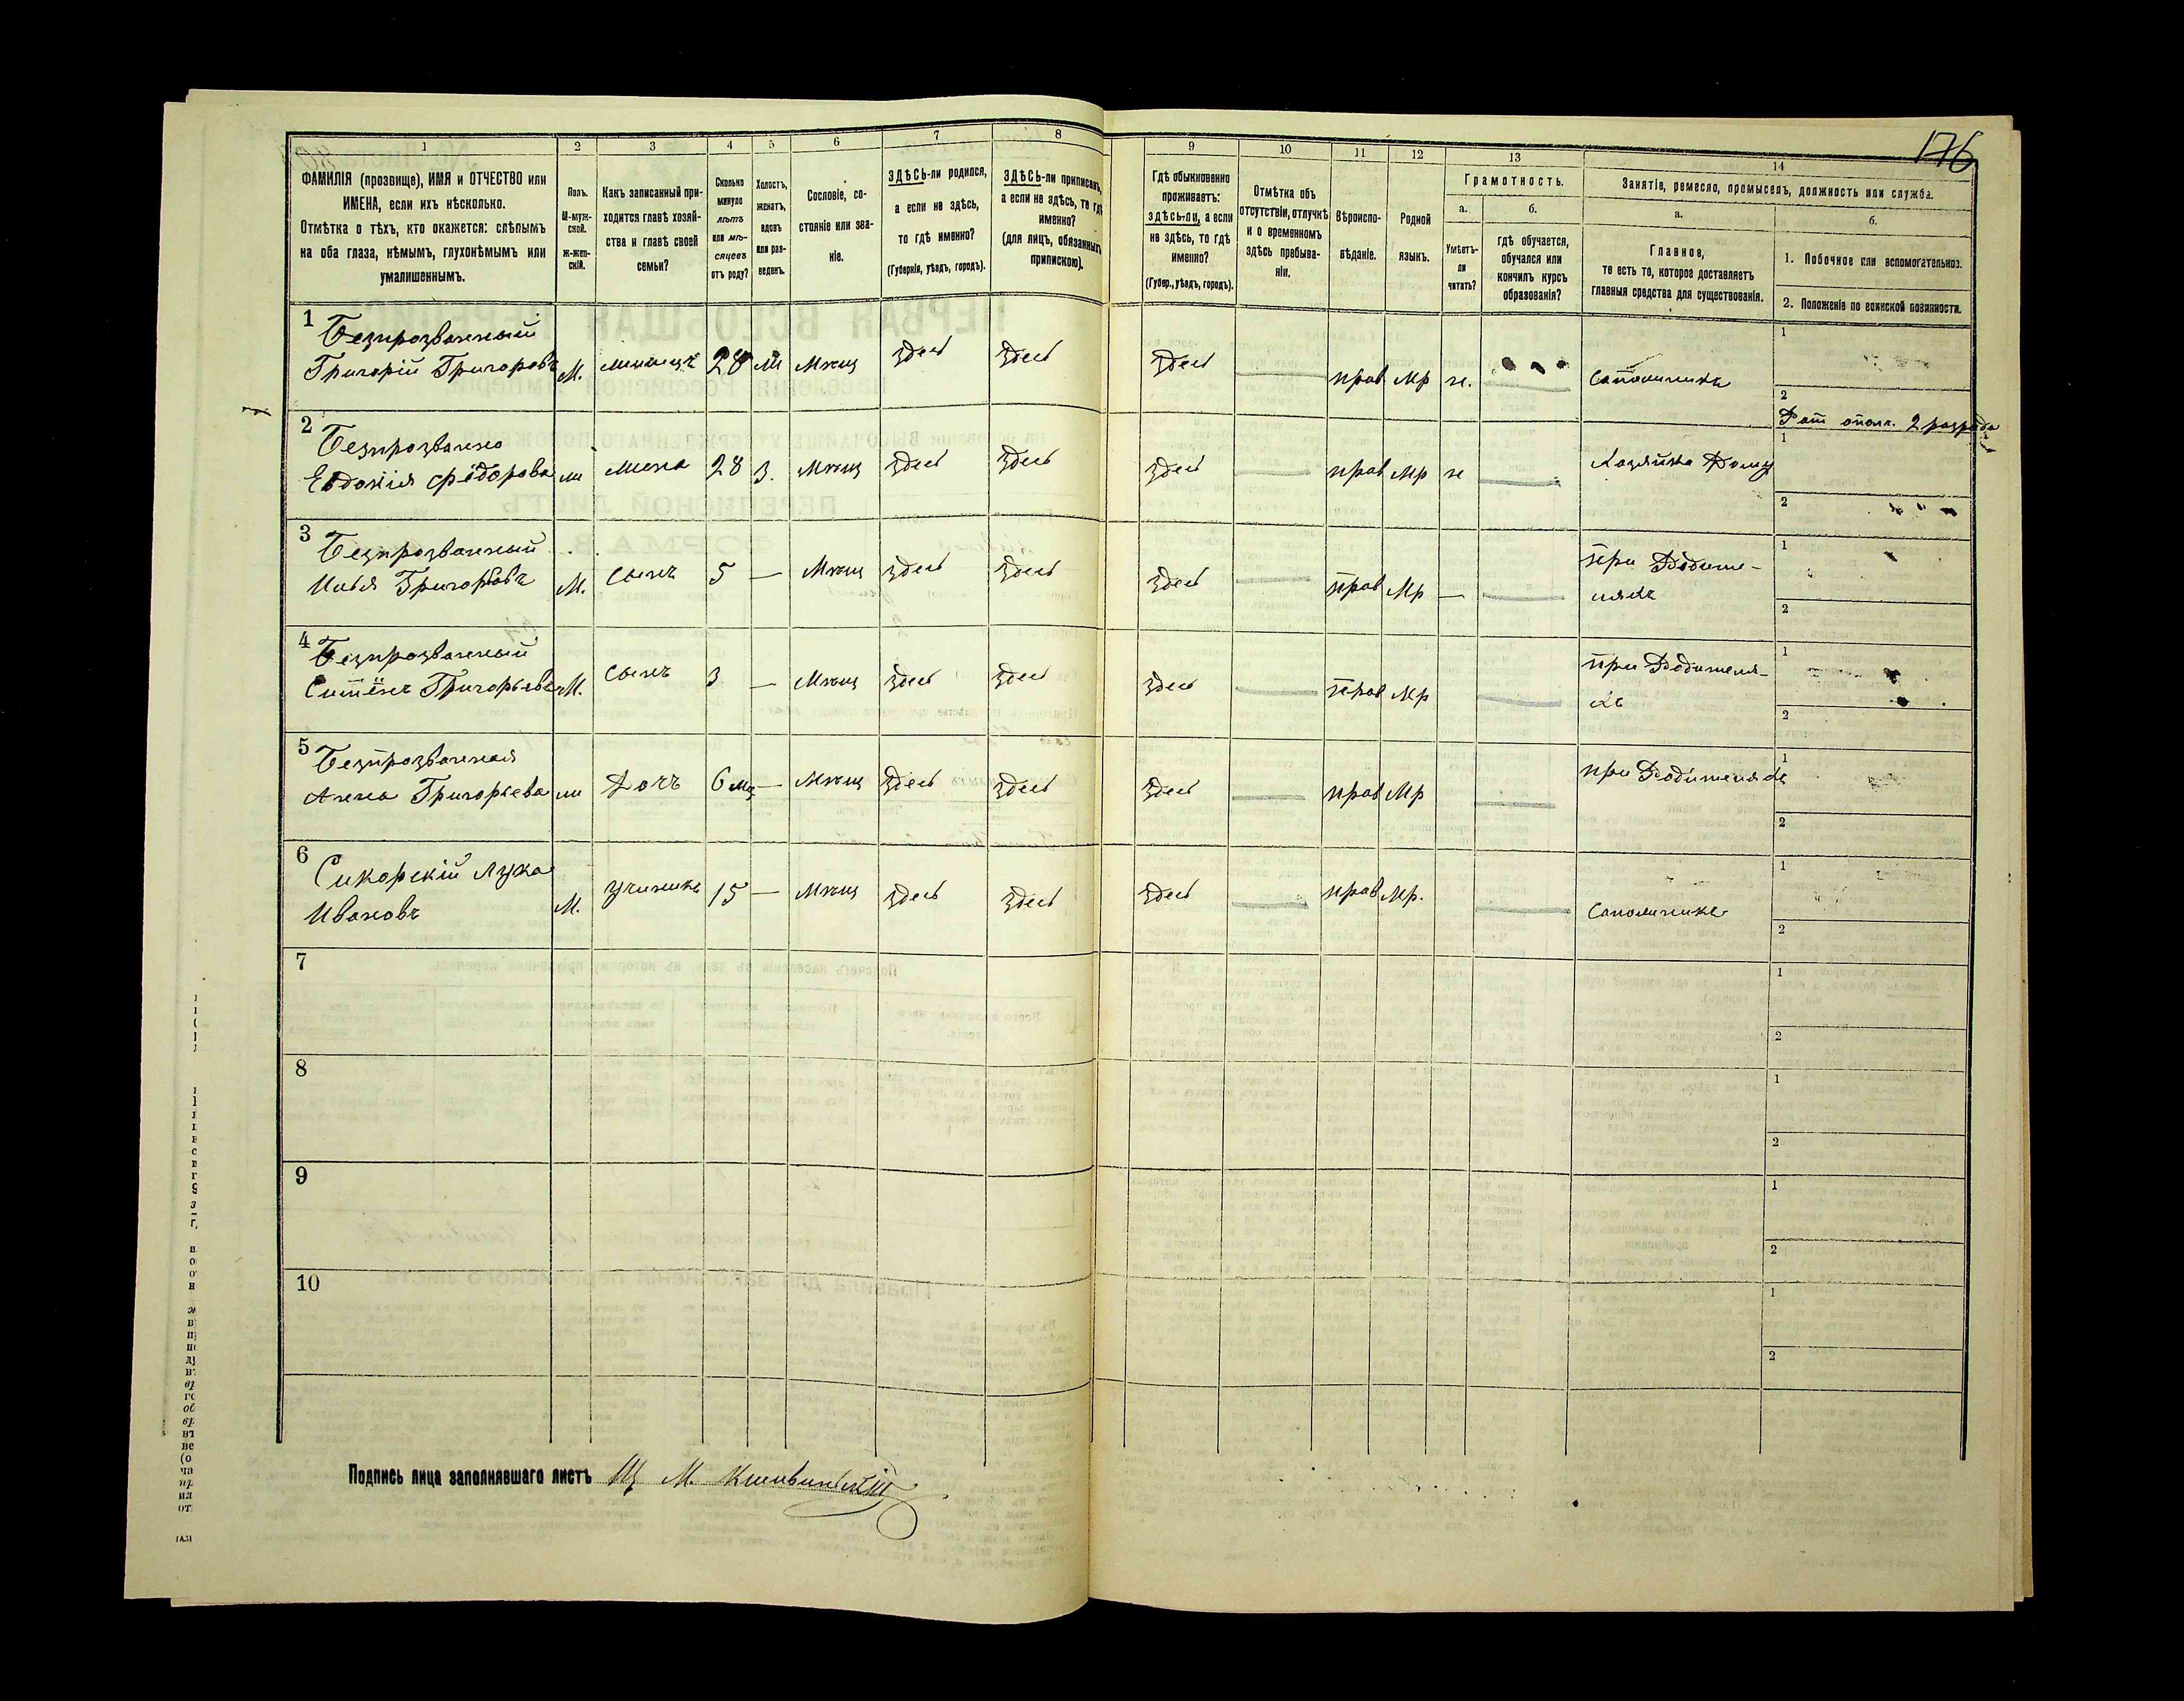 176
1 2 3 4 5 6 7 8 9 10 11 12 13 14
ФАМИЛІЯ (прозвище), ИМЯ и ОТЧЕСТВО или
ИМЕНА, если ихъ нѣсколько.
Отмѣтка о тѣхъ, кто окажется: слѣпымъ
на оба глаза, нѣмымъ, глухонѣмымъ или
умалишеннымъ.
Полъ.
М-муж-
ской.
ж-жен-
скій.
Какъ записанный при-
ходится главѣ хозяй-
ства и главѣ своей
семьи?
Сколько
минуло
лѣтъ
или мѣ-
сяцевъ
отъ роду?
Холостъ,
женатъ,
вдовъ
или раз-
веденъ.
Сословіе, со-
стояніе или зва-
ніе.
ЗДѢСЬ-ли родился,
а если не здѣсь,
то гдѣ именно?
(Губернія, уѣздъ, городъ).
ЗДѢСЬ-ли приписанъ,
а если не здѣсь, то гдѣ
именно?
(для лицъ, обязанныхъ
припискою).
Гдѣ обыкновенно
проживаетъ:
здѣсь-ли, а если
не здѣсь, то гдѣ
именно?
(Губер., уѣздъ, городъ).
Отмѣтка объ
отсутствіи, отлучкѣ
и о временномъ
здѣсь пребыва-
ніи.
Вѣроиспо-
вѣданіе.
Родной
языкъ.
Грамотность.
а.
Умѣетъ-
ли
читать?
б.
гдѣ обучается,
обучался или
кончилъ курсъ
образованія?
Занятіе, ремесло, промыселъ, должность или служба.
а.
Главное,
то есть то, которое доставляетъ
главныя средства для существованія.
б.
1. Побочное или вспомогательное.
2. Положеніе по воинской повинности.
1 Безпрозванный
Григорій Григоровъ М. 28 Мѣщ здесь здесь здесь — прав Мр н. — Сапожникъ
1
2
Рат опол. 2 разряда
2 Безпрозванно
Евдокія Фёдорова жена 28 З. Мѣщ здесь здесь здесь — прав Мр н — Хазяйка Дому
1
2
3 Безпрозванный
Илья Григорьевъ М. Сынъ 5 — Мѣщ здесь здесь здесь — прав Мр — — при Родите-
ляхъ
1
2
4 Безпрозванный
Григорьевъ М. Сынъ 3 — Мѣщ здесь здесь здесь — прав Мр — при Родителя-
хъ
1
2
5 Безпрозванная
Анна Григорьева Дочъ 6 мц — Мѣщ здесь здесь здесь — прав Мр — при Родителяхъ
1
2
6 Сикорскій Лука
Ивановъ М. ученикъ 15 — Мѣщ здесь здесь здесь — прав Мр. — Сапожникъ
1
2
7
1
2
8
1
2
9
1
2
10
1
2
Подпись лица заполнявшаго листъ